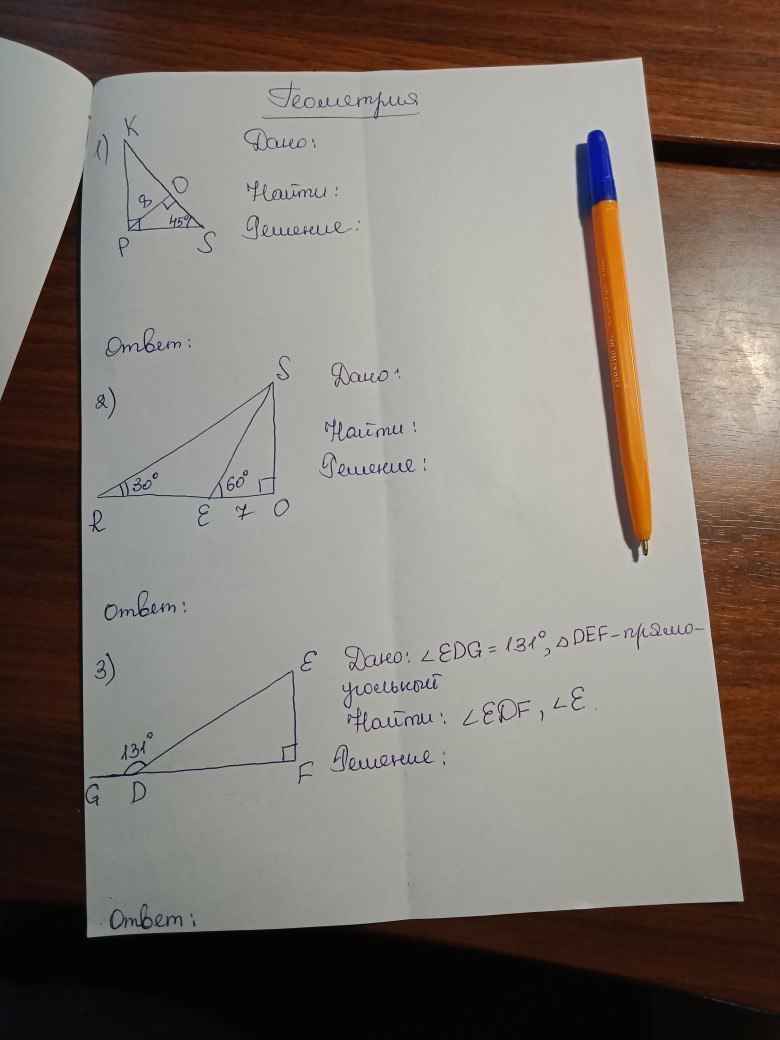 Геометрия
1)
K
Дано:
O
8
Найти:
45°
P
S
Решение:
Ответ:
2)
S
Дано:
Найти:
Решение:
30°
60°
R
E
7
O
Ответ:
3)
E
Дано: ∠EDG = 131°, △DEF - прямо-
угольный
Найти: ∠EDF, ∠E.
Решение:
131°
G
D
F
Ответ: